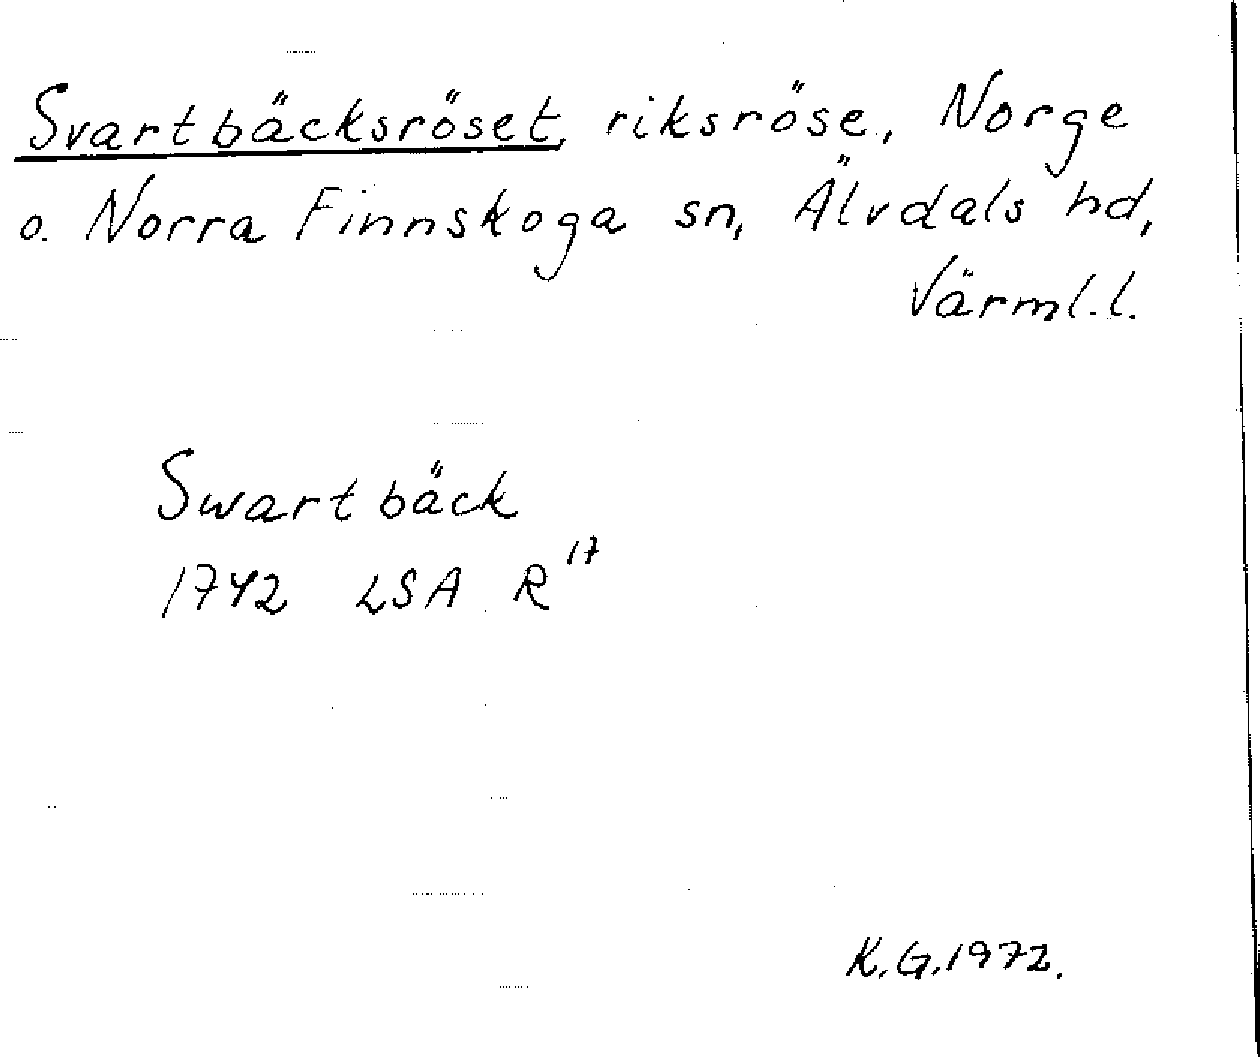 Svartbäcksröset, riksröse, Norge
o. Norra Finnskoga sn, Älvdals hd,
Värml.l.
Swartbäck
1742 LSA R¹⁷
K.G.1972.